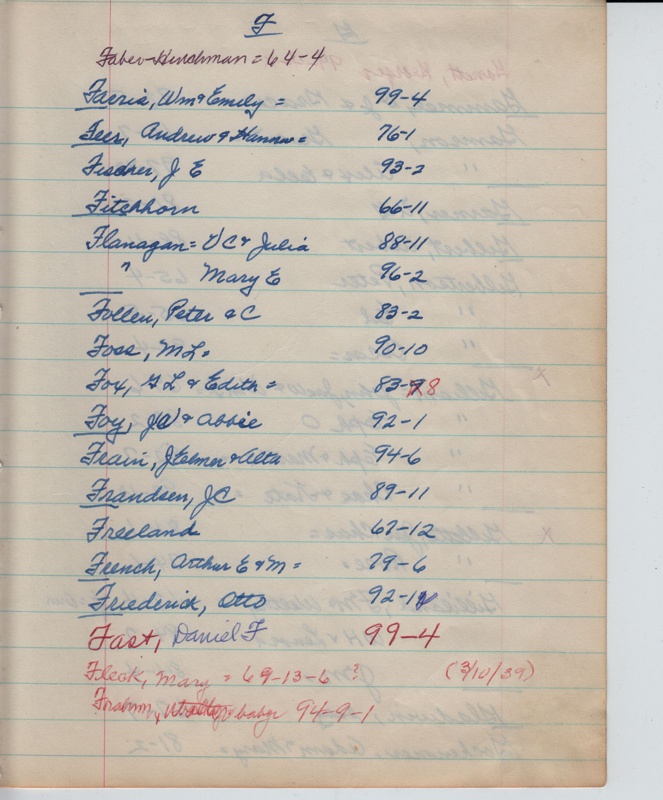 F
Faber-Hinchman = 64-4
Farris, Wm & Emily = 99-4
Feer, Andrew & Hanna = 76-1
Fischer, J E 93-2
Fitchhorn 66-11
Flanagan = & Julia 88-11
" Mary E 96-2
Follen, Peter & C 83-2
Foss, M L = 90-10
Foy, & Edith = 83- 8
Foy, & Abbie 92-1
Frain, J Elmer & Alta 94-6
Frandsen, J C 89-11
Freeland 67-12
French, Arthur E & M = 79-6
Friederick, Otto 92-1
Fast, Daniel F 99-4
Fleck, Mary = 69-13-6 ? (3/10/39)
& baby 94-9-1